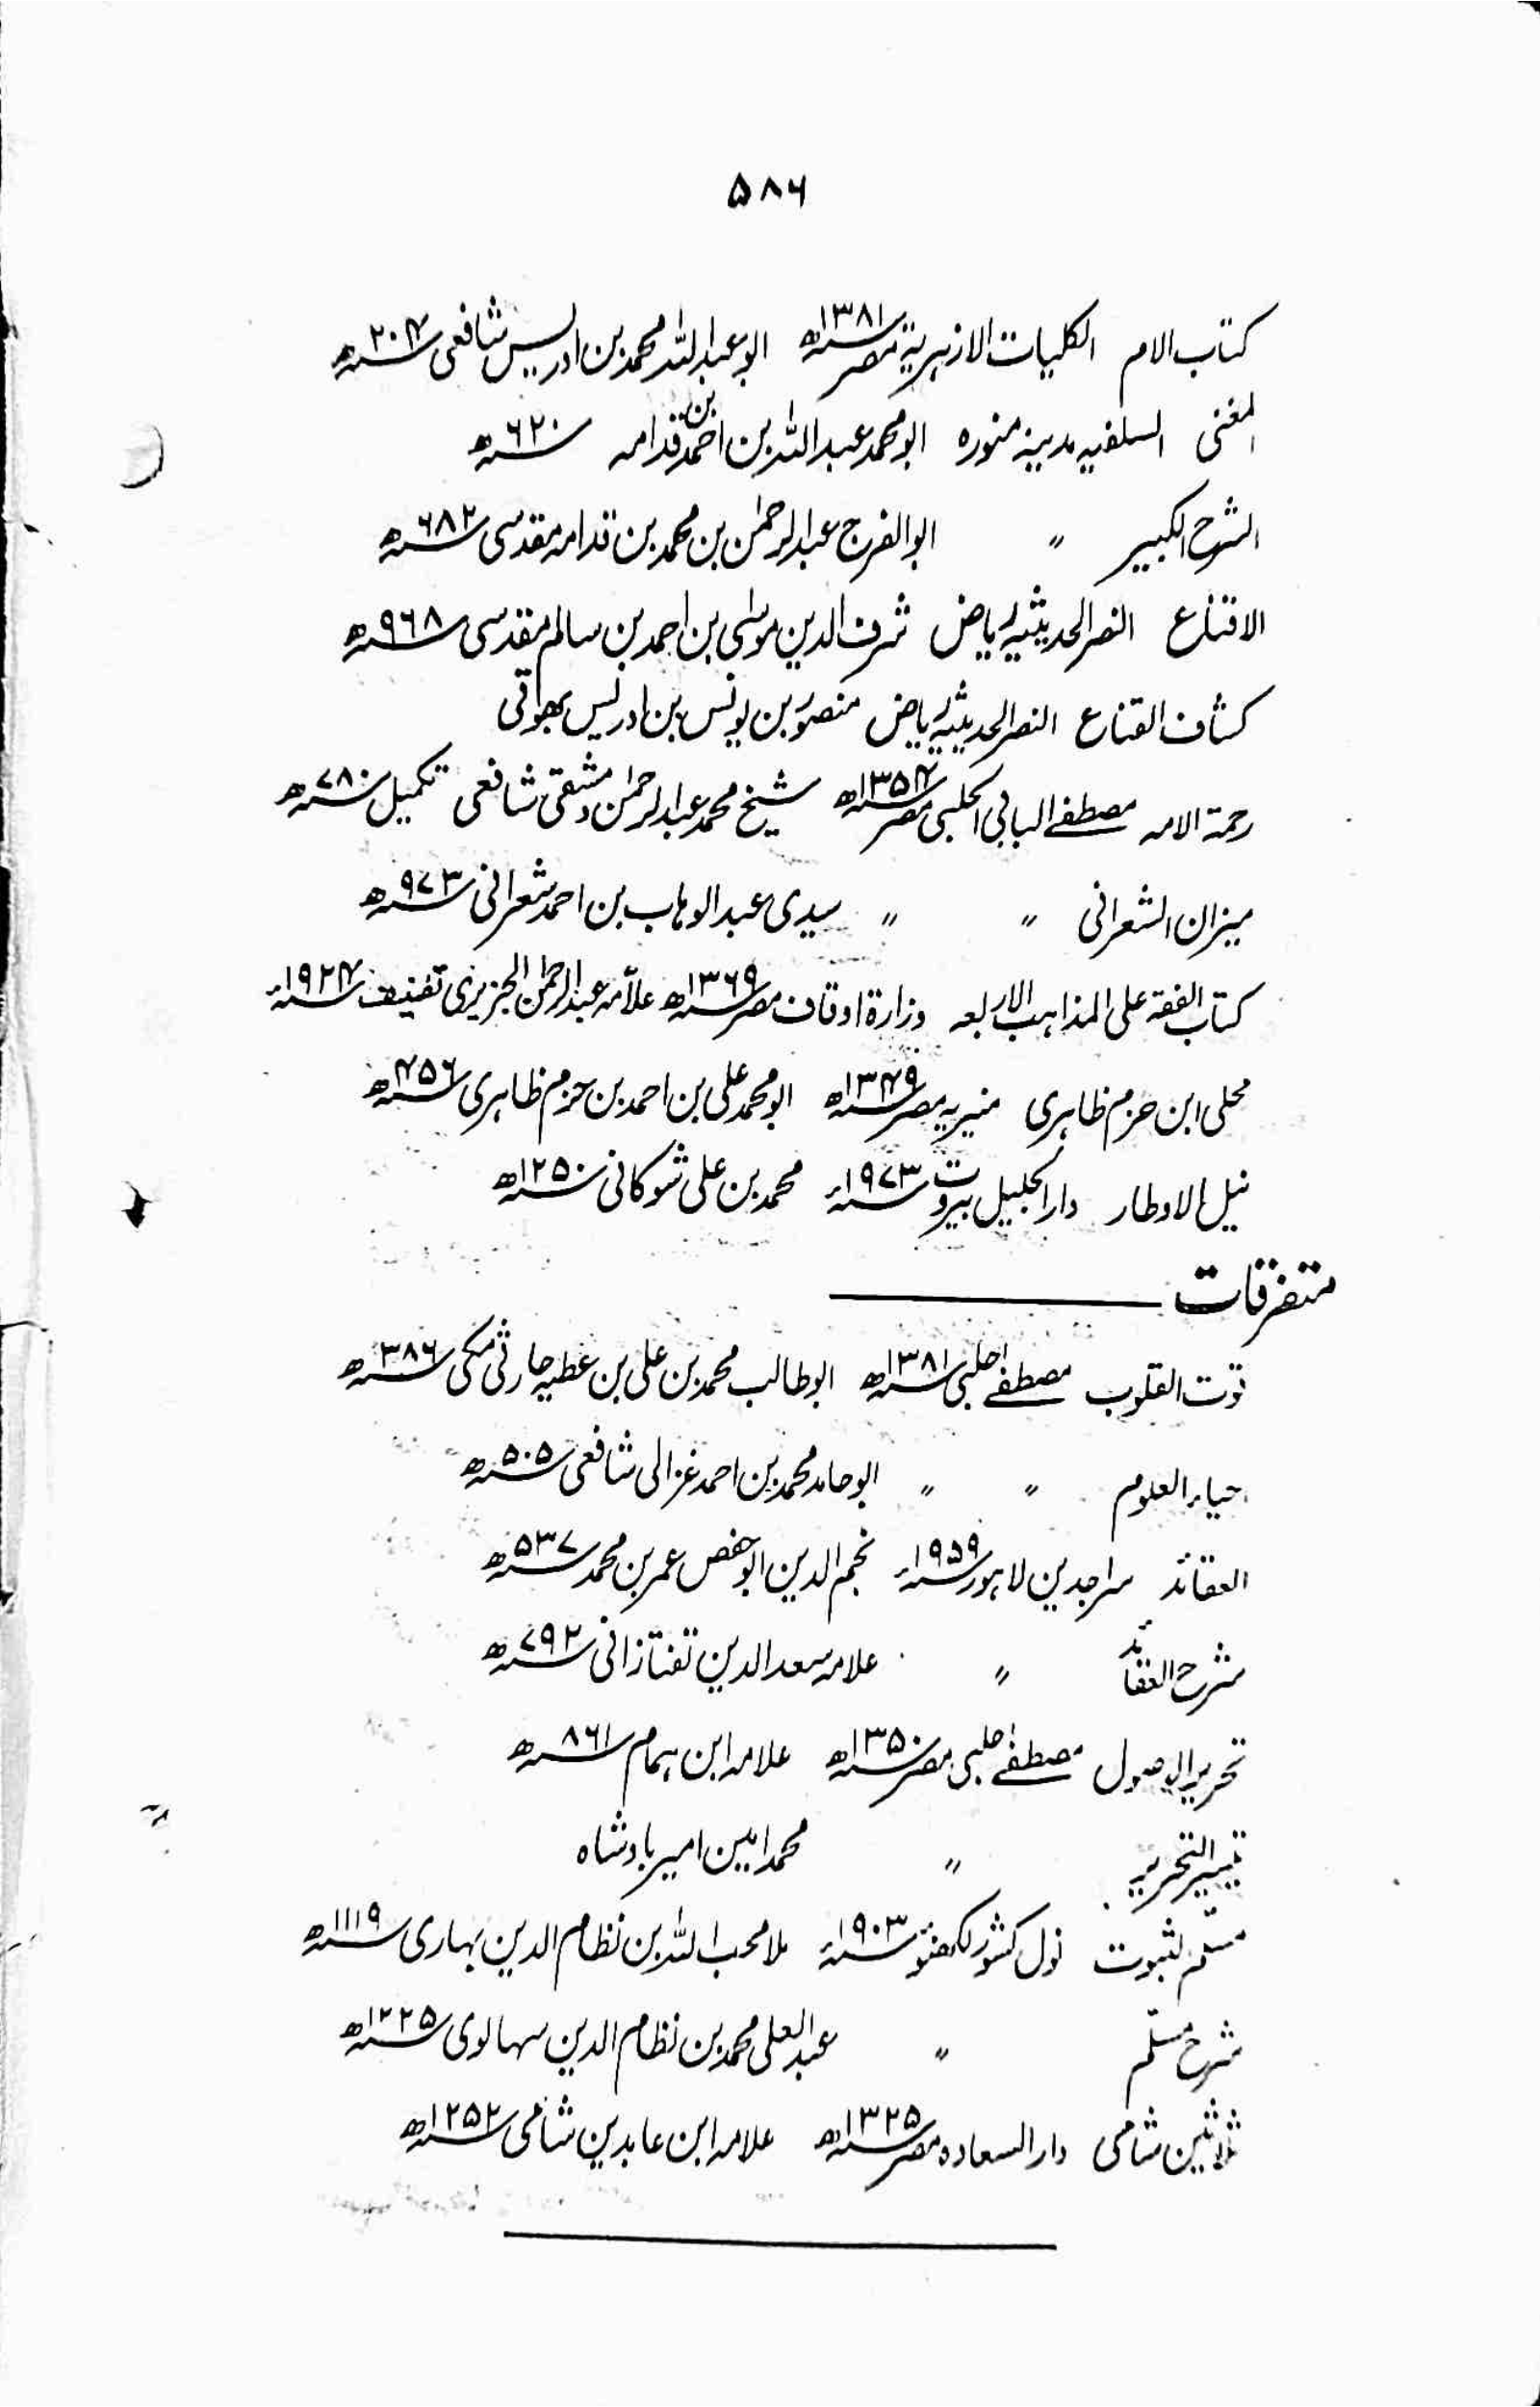 ۵۸۶
کتاب الام الکلیات الازہریۃ مصر ۱۳۸۱ھ ابو عبداللہ محمد بن ادریس شافعی ۲۰۴ھ
المغنی السلفیہ مدینہ منورہ ابو محمد عبداللہ بن احمد بن قدامہ ۶۲۰ھ
الشرح الکبیر 〃 ابوالفرج عبدالرحمٰن بن محمد بن قدامہ مقدسی ۶۸۲ھ
الاقناع النصر الحدیثیہ ریاض شرف الدین موسٰی بن احمد بن سالم مقدسی ۹۶۸ھ
کشاف القناع النصر الحدیثیہ ریاض منصور بن یونس بن ادریس بھوتی
رحمۃ الامہ مصطفےٰ البابی الحلبی مصر ۱۳۵۴ھ شیخ محمد عبدالرحمٰن دمشقی شافعی تکمیل ۷۸۰ھ
میزان الشعرانی 〃 〃 سیدی عبدالوہاب بن احمد شعرانی ۹۷۳ھ
کتاب الفقہ علی المذاہب الاربعہ وزارۃ اوقاف مصر ۱۳۶۹ھ علاّمہ عبدالرحمٰن الجزیری تصنیف ۱۹۲۴ء
محلی ابن حزم ظاہری منیریہ مصر ۱۳۴۹ھ ابو محمد علی بن احمد بن حزم ظاہری ۴۵۶ھ
نیل الاوطار دار الجلیل بیروت ۱۹۷۳ء محمد بن علی شوکانی ۱۲۵۰ھ
متفرقات
قوت القلوب مصطفےٰ حلبی ۱۳۸۱ھ ابو طالب محمد بن علی بن عطیہ حارثی مکی ۳۸۶ھ
احیاء العلوم 〃 〃 ابو حامد محمد بن احمد غزالی شافعی ۵۰۵ھ
العقائد سراجدین لاہور ۱۹۵۹ء نجم الدین ابو حفص عمر بن محمد ۵۳۷ھ
شرح العقائد 〃 علامہ سعد الدین تفتازانی ۷۹۲ھ
تحریر الاصول مصطفےٰ حلبی مصر ۱۳۵۰ھ علامہ ابن ہمام ۸۶۱ھ
تیسیر التحریر 〃 محمد امین امیر بادشاہ
مسلّم الثبوت نول کشور لکھنؤ ۱۹۰۳ء ملا محب اللہ بن نظام الدین بہاری ۱۱۱۹ھ
شرح مسلّم 〃 عبدالعلی محمد بن نظام الدین سہالوی ۱۲۲۵ھ
ثلاثین شامی دار السعادہ مصر ۱۳۲۵ھ علامہ ابن عابدین شامی ۱۲۵۲ھ